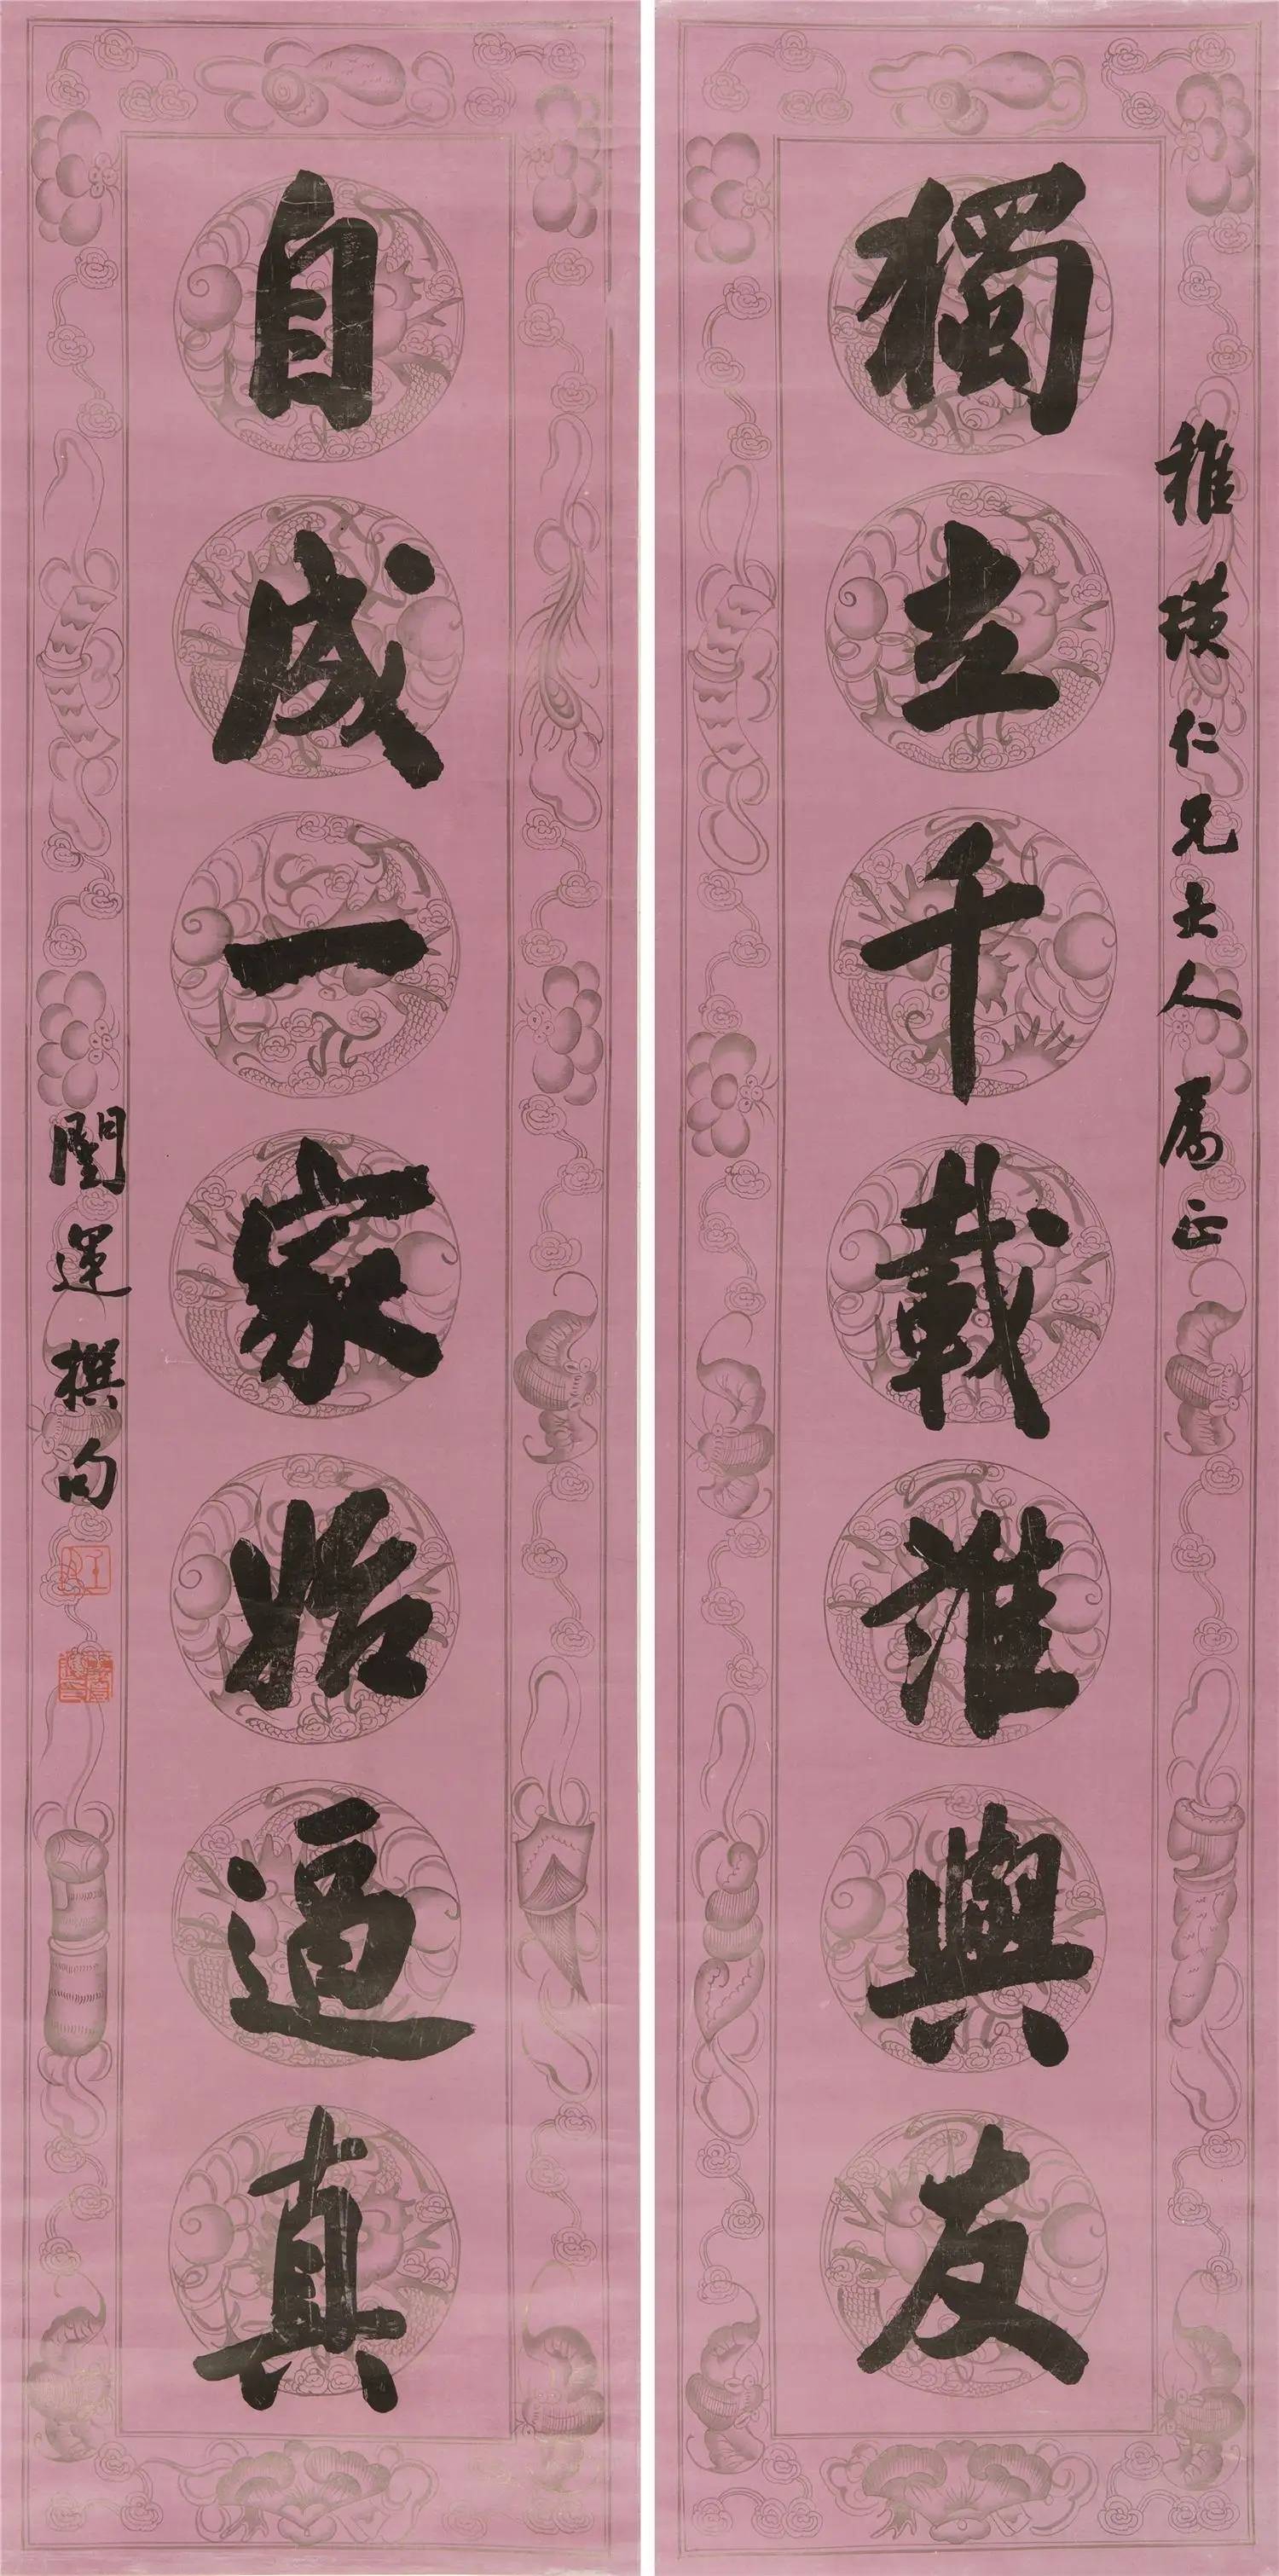 稚璜仁兄大人属正
獨立千載誰與友
自成一家始逼真
闓運撰句